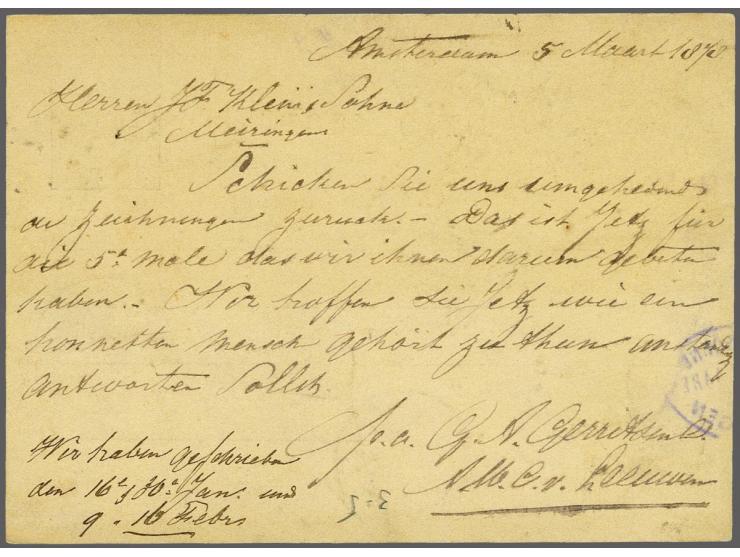 Amsterdam 5 Maart 1878
Herren JF Klein & Sohne
Meiringen
Schicken Sie uns umgehend
de zeichnungen zuruck. – Das ist Jetz für
die 5e male das wir ihnen darum gebeten
haben. – Wir hoffen sie Jetz wie ein
honnetten mensch gehört zu thun anstandig
antworten Sollen.
p.a. G. A. Gerritsen &
A M. C. v. Leeuwen
Wir haben geschrieben
den 16e & 30e Jan. und
9 - 16 Febr